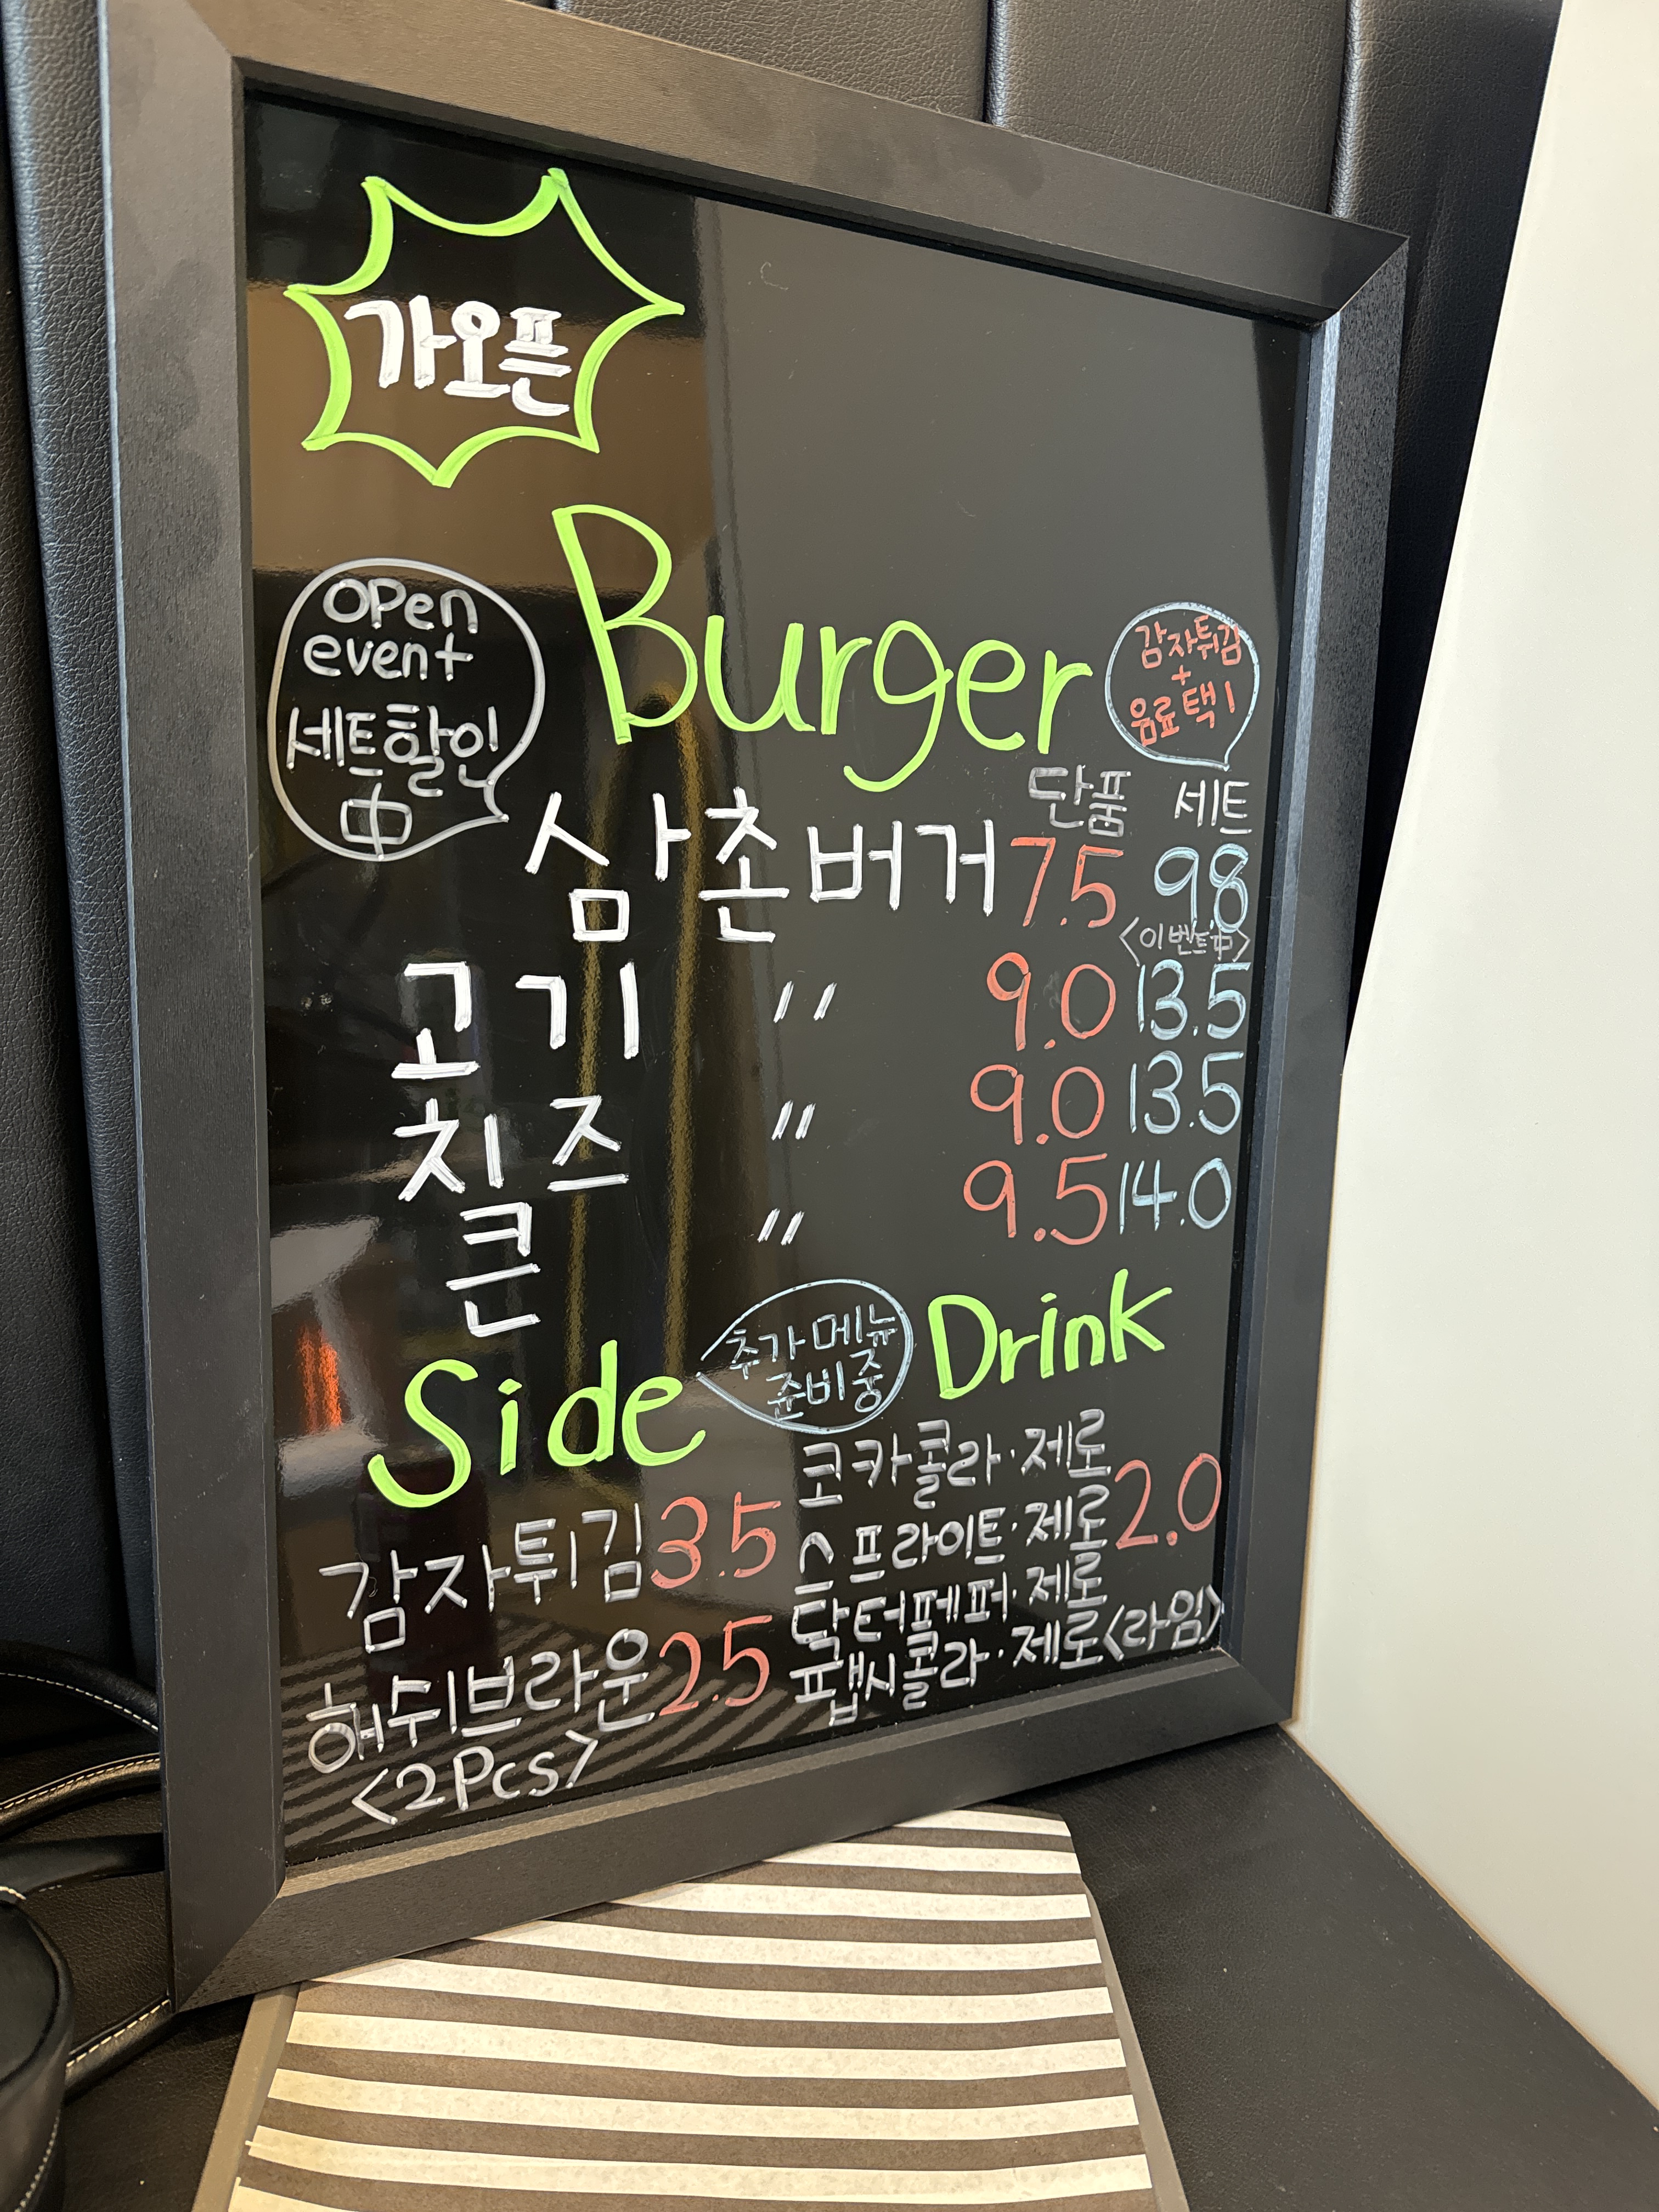 가오픈
Burger
open
event
세트할인
中
감자튀김
+
음료택1
단품 세트
삼촌버거 7.5 9.8
<이벤트中>
고기 〃 9.0 13.5
치즈 〃 9.0 13.5
큰 〃 9.5 14.0
Side
추가메뉴
준비중
감자튀김 3.5
해쉬브라운 2.5
<2Pcs>
Drink
코카콜라·제로
스프라이트·제로 2.0
닥터페퍼·제로
펩시콜라·제로<라임>